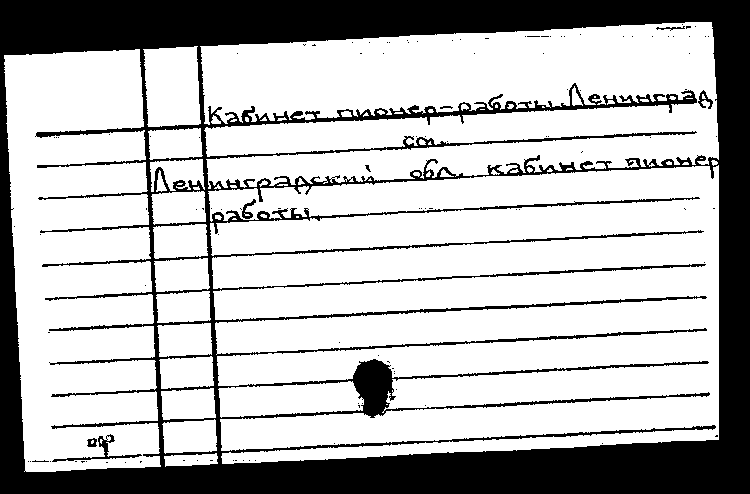 Кабинет пионер-работы. Ленинград.
см.
Ленинградский обл. кабинет пионер
работы.